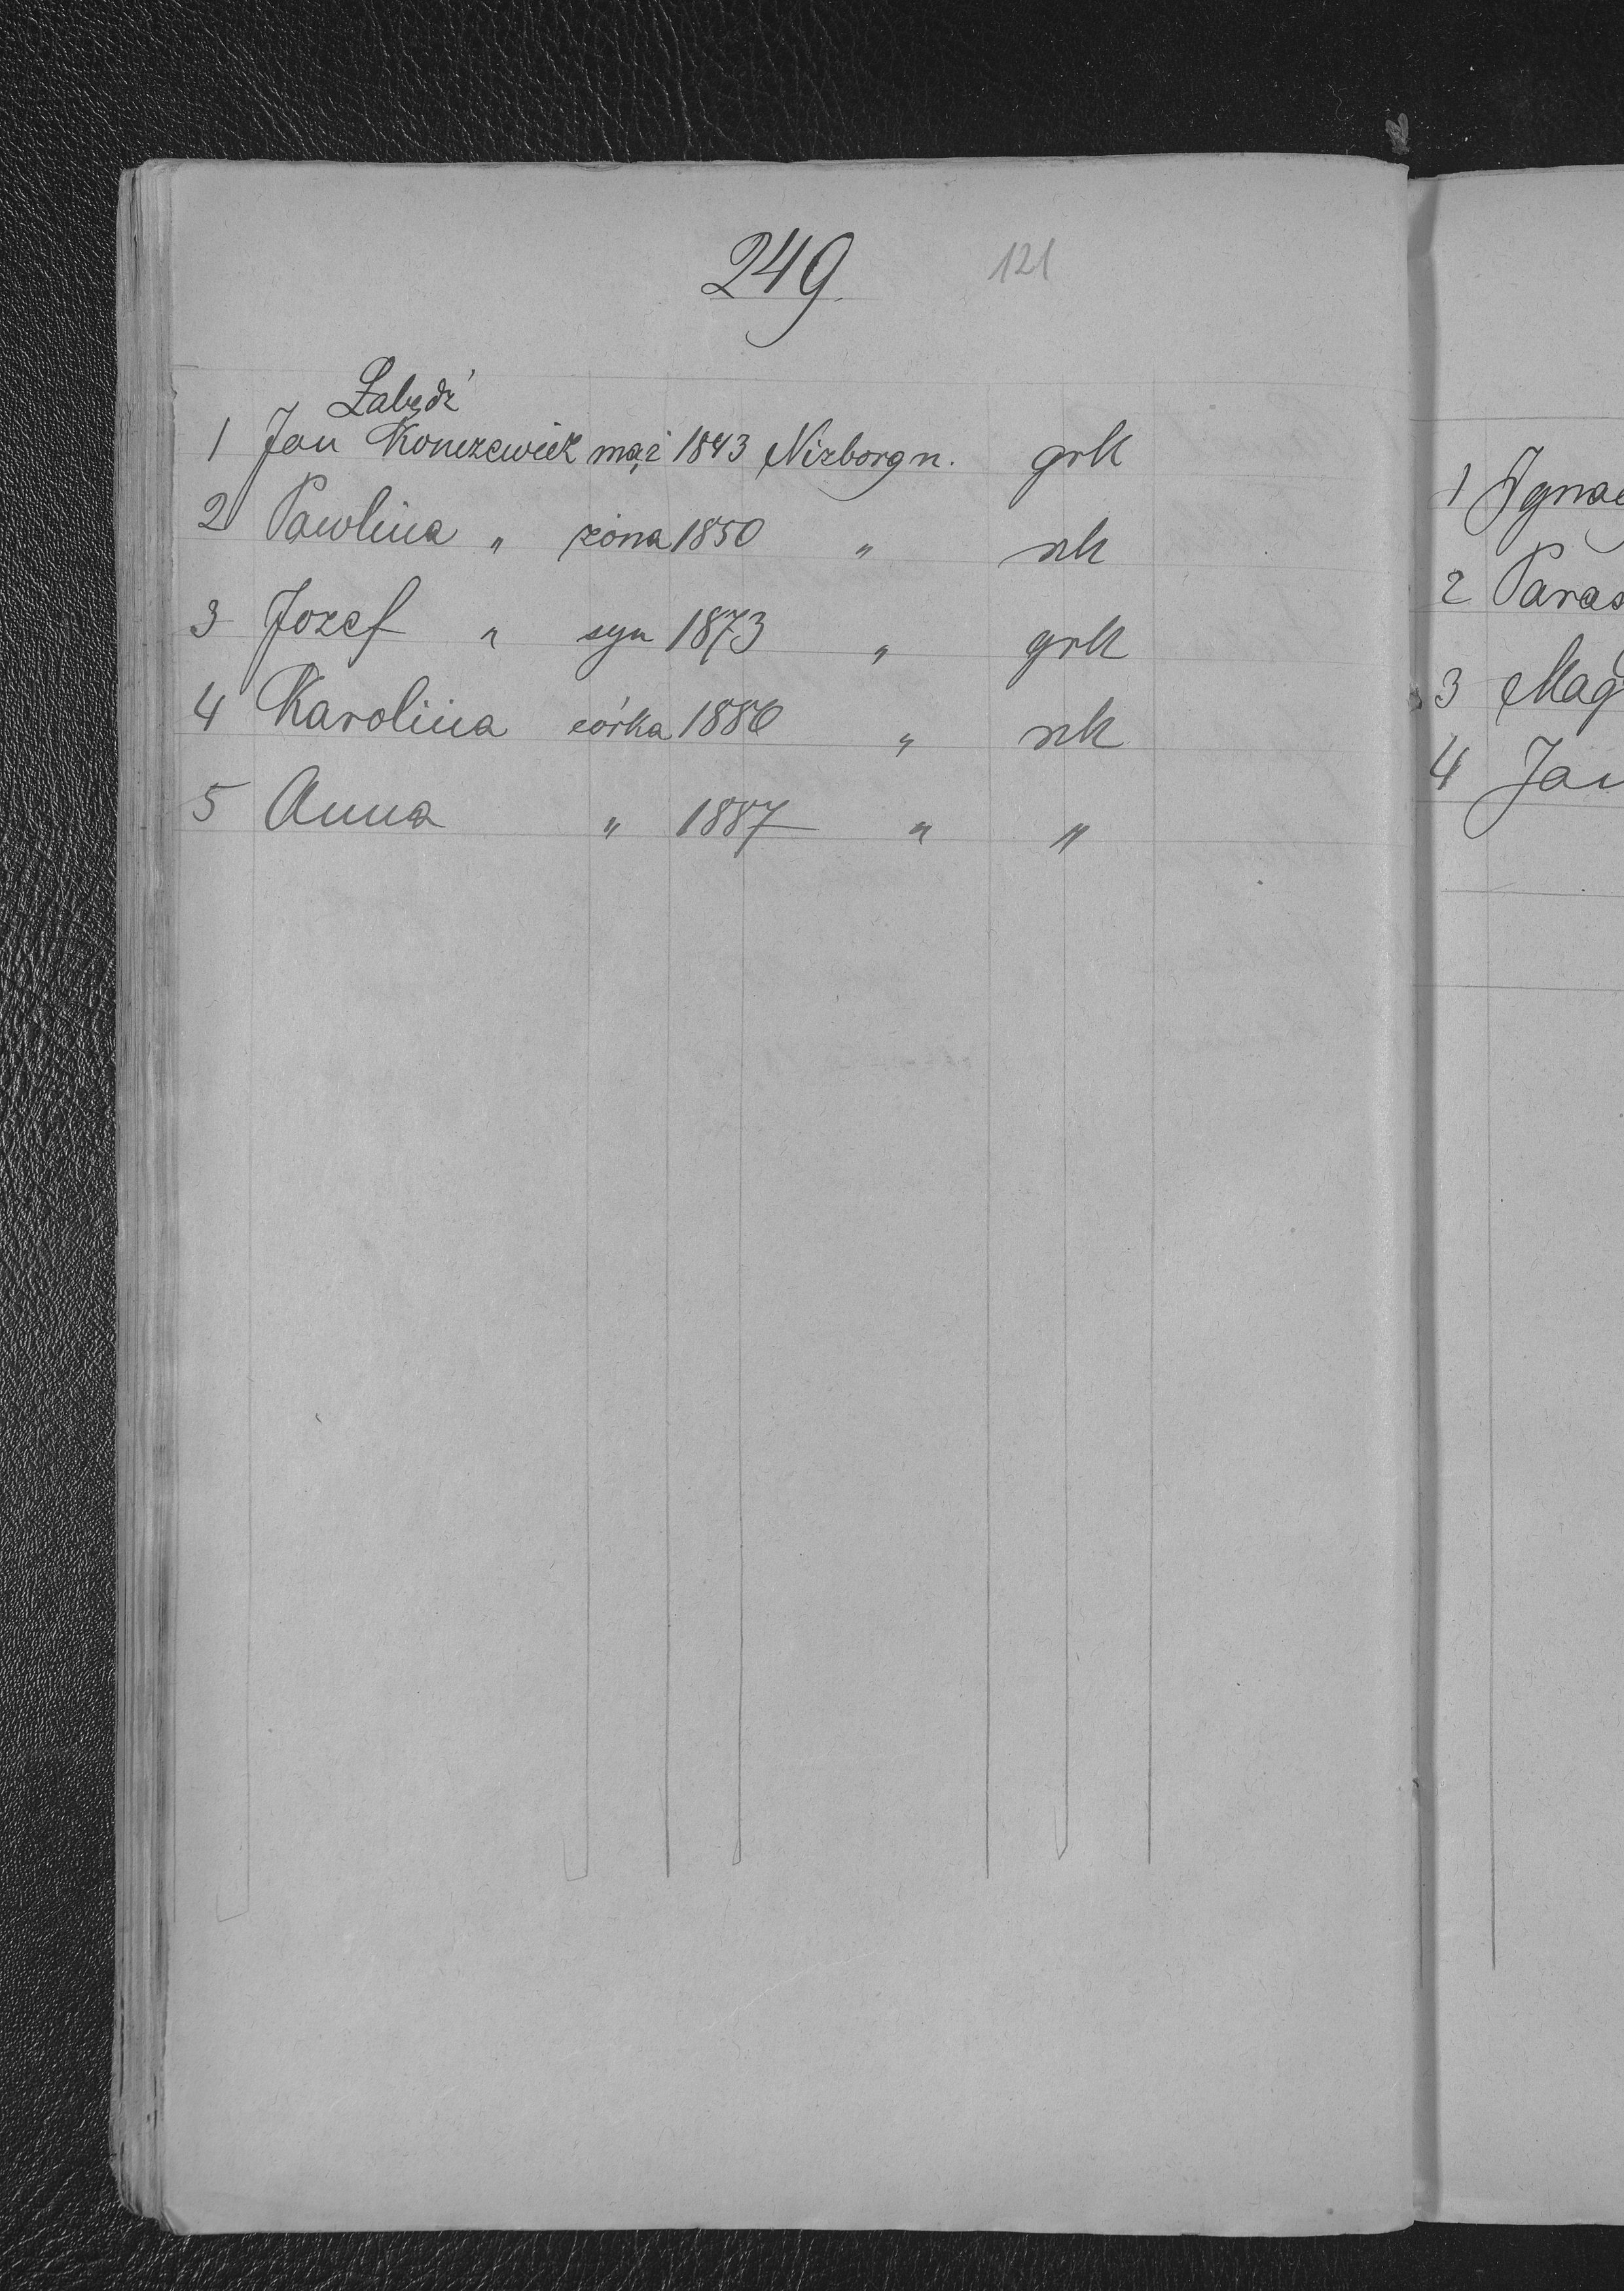 249.
121
Łabędź
1 Jan Konczewicz mąż 1843 Niżborg n. grk
2 Pawlina " żona 1850 " rzk
3 Jozef " syn 1873 " grk
4 Karolina córka 1886 " rzk
5 Anna " 1887 " "
1 Ignac
2 Paras
3 Mag
4 Jan